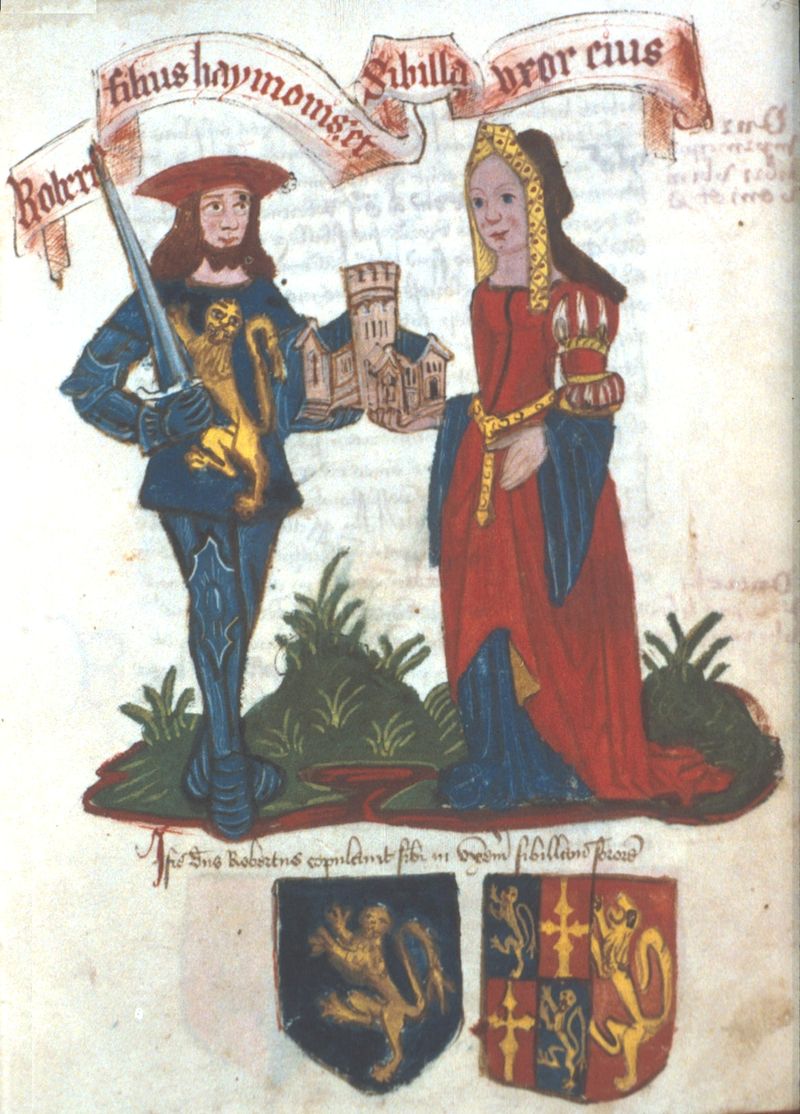 Robert filius haymonis et Sibilla uxor eius
Iste dns Robertus copulavit sibi in uxorem sibillam sororem